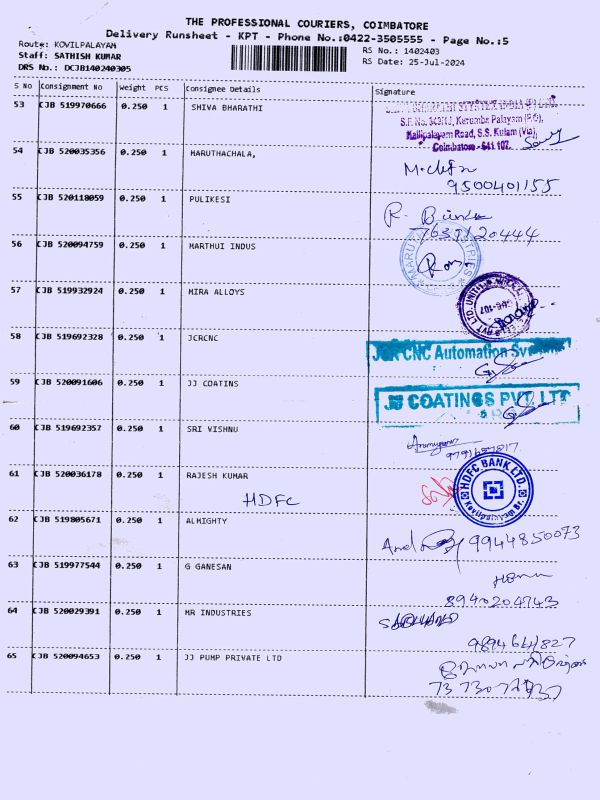 THE PROFESSIONAL COURIERS, COIMBATORE
Delivery Runsheet - KPT - Phone No.:0422-3505555 - Page No.:5
Route: KOVILPALAYAM RS No.: 1402403
Staff: SATHISH KUMAR RS Date: 25-Jul-2024
DRS No.: DCJB140240305
S No Consignment No Weight PCS Consignee Details Signature
53 CJB 519970666 0.250 1 SHIVA BHARATHI
S.F. No. Kurumba Palayam (P.O),
Kallipalayam Road, S.S. Kulam (Via),
Coimbatore - 641 107.
54 CJB 520035356 0.250 1 MARUTHACHALA,
9500401155
55 CJB 520118059 0.250 1 PULIKESI
R.
56 CJB 520094759 0.250 1 MARTHUI INDUS
57 CJB 519932924 0.250 1 MIRA ALLOYS
58 CJB 519692328 0.250 1 JCRCNC
JCR CNC Automation
59 CJB 520091606 0.250 1 JJ COATINS
JJ COATINGS PVT. LTD
60 CJB 519692357 0.250 1 SRI VISHNU
61 CJB 520036178 0.250 1 RAJESH KUMAR
HDFC
HDFC BANK LTD.
Kovilpalayam Br.
62 CJB 519805671 0.250 1 ALMIGHTY
9944850073
63 CJB 519977544 0.250 1 G GANESAN
8940204743
64 CJB 520029391 0.250 1 MR INDUSTRIES
9894641827
65 CJB 520094653 0.250 1 JJ PUMP PRIVATE LTD